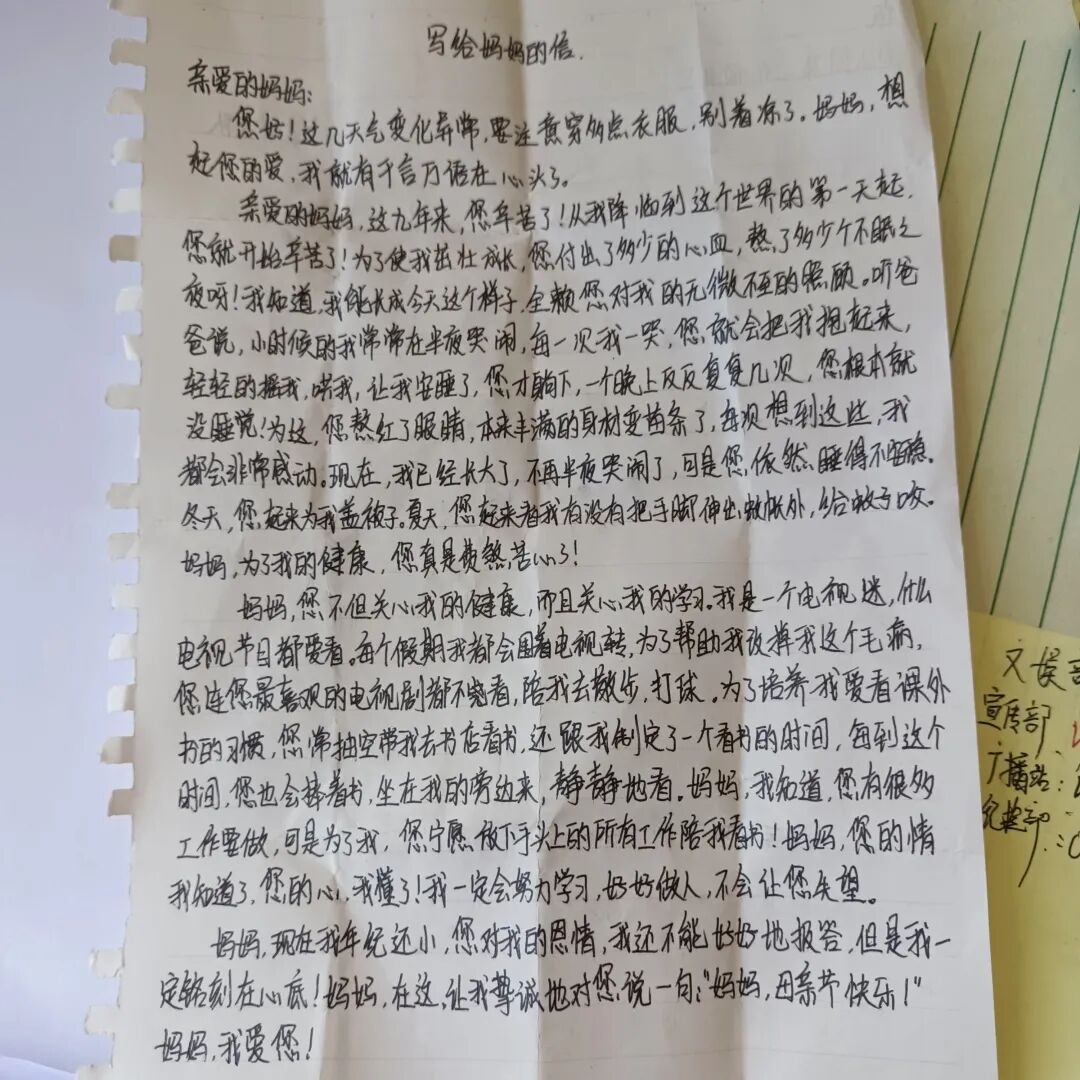 写给妈妈的信.
亲爱的妈妈:
您好!这几天气变化异常,要注意穿多点衣服,别着凉了。妈妈,想
起您的爱,我就有千言万语在心头了。
亲爱的妈妈,这九年来,您辛苦了!从我降临到这个世界的第一天起,
您就开始辛苦了!为了使我茁壮成长,您付出了多少的心血,熬了多少个不眠之
夜呀!我知道,我能长成今天这个样子,全赖您对我的无微不至的照顾。听爸
爸说,小时候的我常常在半夜哭闹,每一次我一哭,您就会把我抱起来,
轻轻的摇我,哄我,让我安睡了,您才躺下,一个晚上反反复复几次,您根本就
没睡觉!为这,您熬红了眼睛,本来丰满的身材变苗条了,每次想到这些,我
都会非常感动。现在,我已经长大了,不再半夜哭闹了,可是您依然睡得不安稳。
冬天,您起来为我盖被子。夏天,您起来看我有没有把手脚伸出蚊帐外,给蚊子咬。
妈妈,为了我的健康,您真是费煞苦心了!
妈妈,您不但关心我的健康,而且关心我的学习。我是一个电视迷,什么
电视节目都爱看。每个假期我都会围着电视转,为了帮助我改掉我这个毛病,
您连您最喜欢的电视剧都不看,陪我去散步,打球。为了培养我爱看课外
书的习惯,您常抽空带我去书店看书,还跟我制定了一个看书的时间,每到这个
时间,您也会捧着书,坐在我的旁边来,静静地看。妈妈,我知道,您有很多
工作要做,可是为了我,您宁愿放下手头上的所有工作陪我看书!妈妈,您的情
我知道了,您的心,我懂了!我一定会努力学习,好好做人,不会让您失望。
妈妈,现在我年纪还小,您对我的恩情,我还不能好好地报答,但是我一
定铭刻在心底!妈妈,在这,让我挚诚地对您说一句:“妈妈,母亲节快乐!”
妈妈,我爱您!
宣传部
广播站: